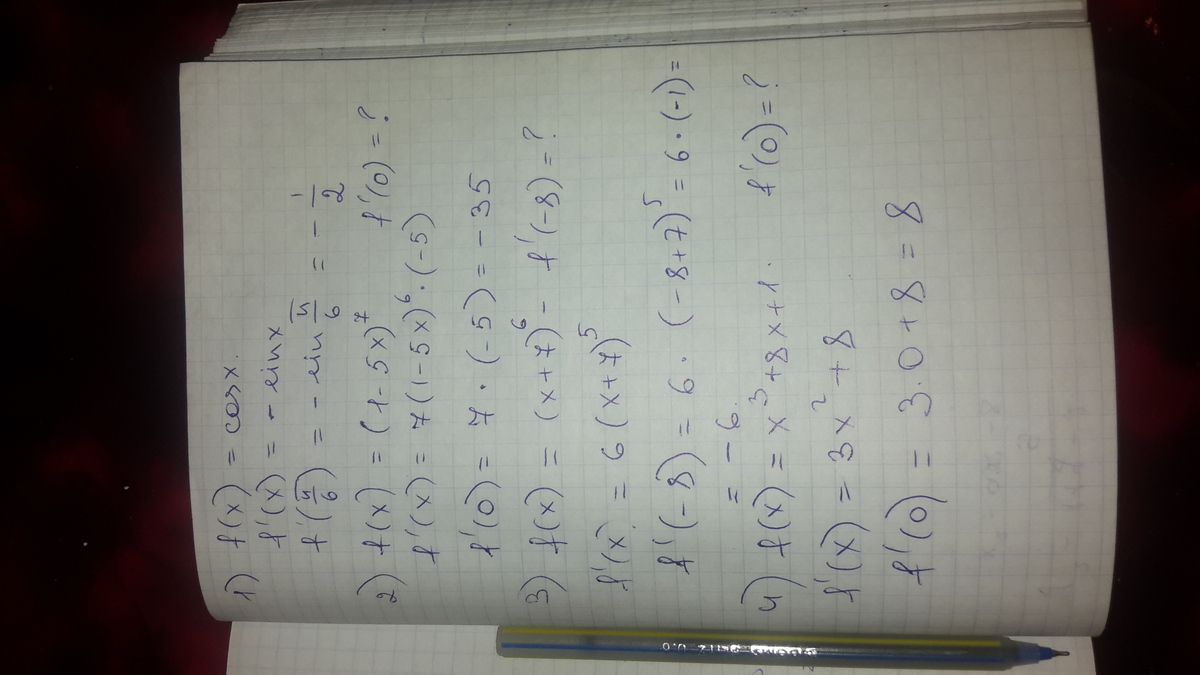 1) f(x) = cosx.
f'(x) = - sinx
f'(π/6) = - sin π/6 = - 1/2
2) f(x) = (1-5x)⁷ f'(0) = ?
f'(x) = 7(1-5x)⁶ · (-5)
f'(0) = 7 · (-5) = - 35
3) f(x) = (x+7)⁶ - f'(-8) = ?
f'(x) = 6(x+7)⁵
f'(-8) = 6 · (-8+7)⁵ = 6 · (-1) =
= - 6.
4) f(x) = x³+8x+1. f'(0) = ?
f'(x) = 3x² + 8
f'(0) = 3·0+8 = 8